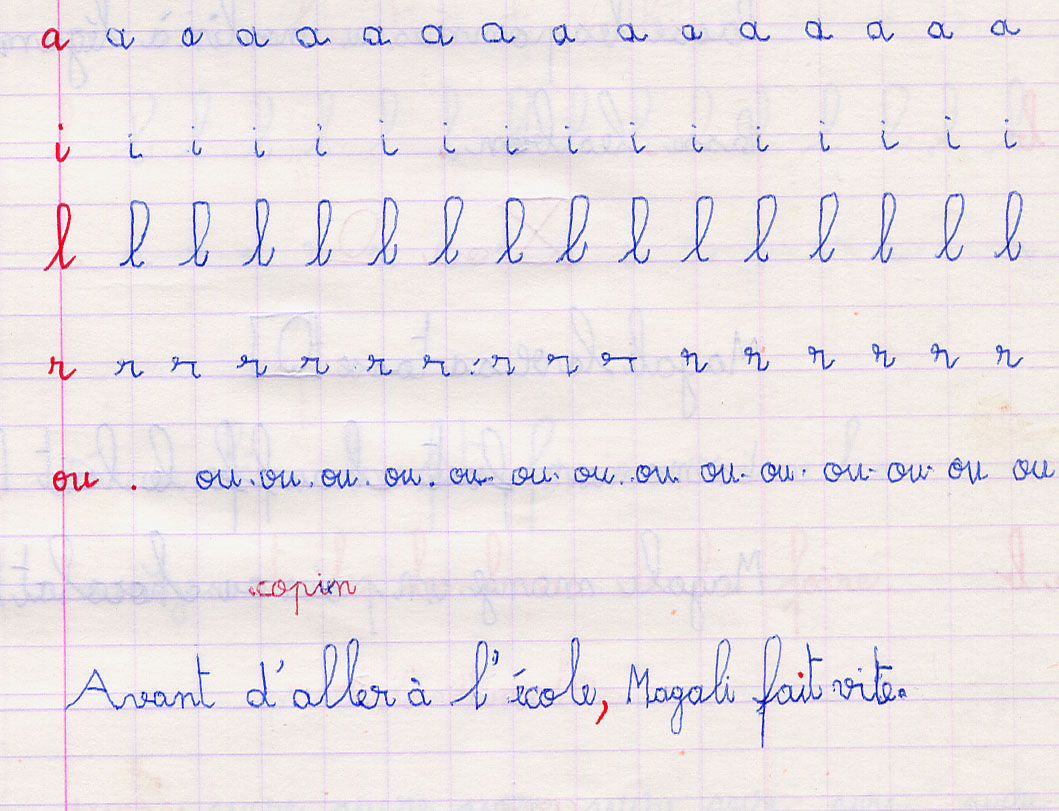 a a a a a a a a a a a a a a a a
i i i i i i i i i i i i i i i i
l l l l l l l l l l l l l l l l
r r r r r r r r r r r r r r r r
ou . ou. ou. ou. ou. ou. ou. ou. ou. ou. ou. ou. ou. ou ou
copier
Avant d'aller à l'école, Magali fait vite.